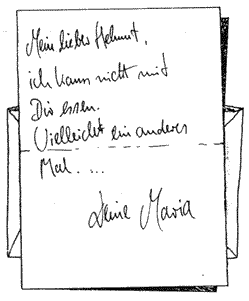 Mein lieber Helmut,
ich kann nicht mit
Dir essen.
Vielleicht ein anderes
Mal. ...
Deine Maria